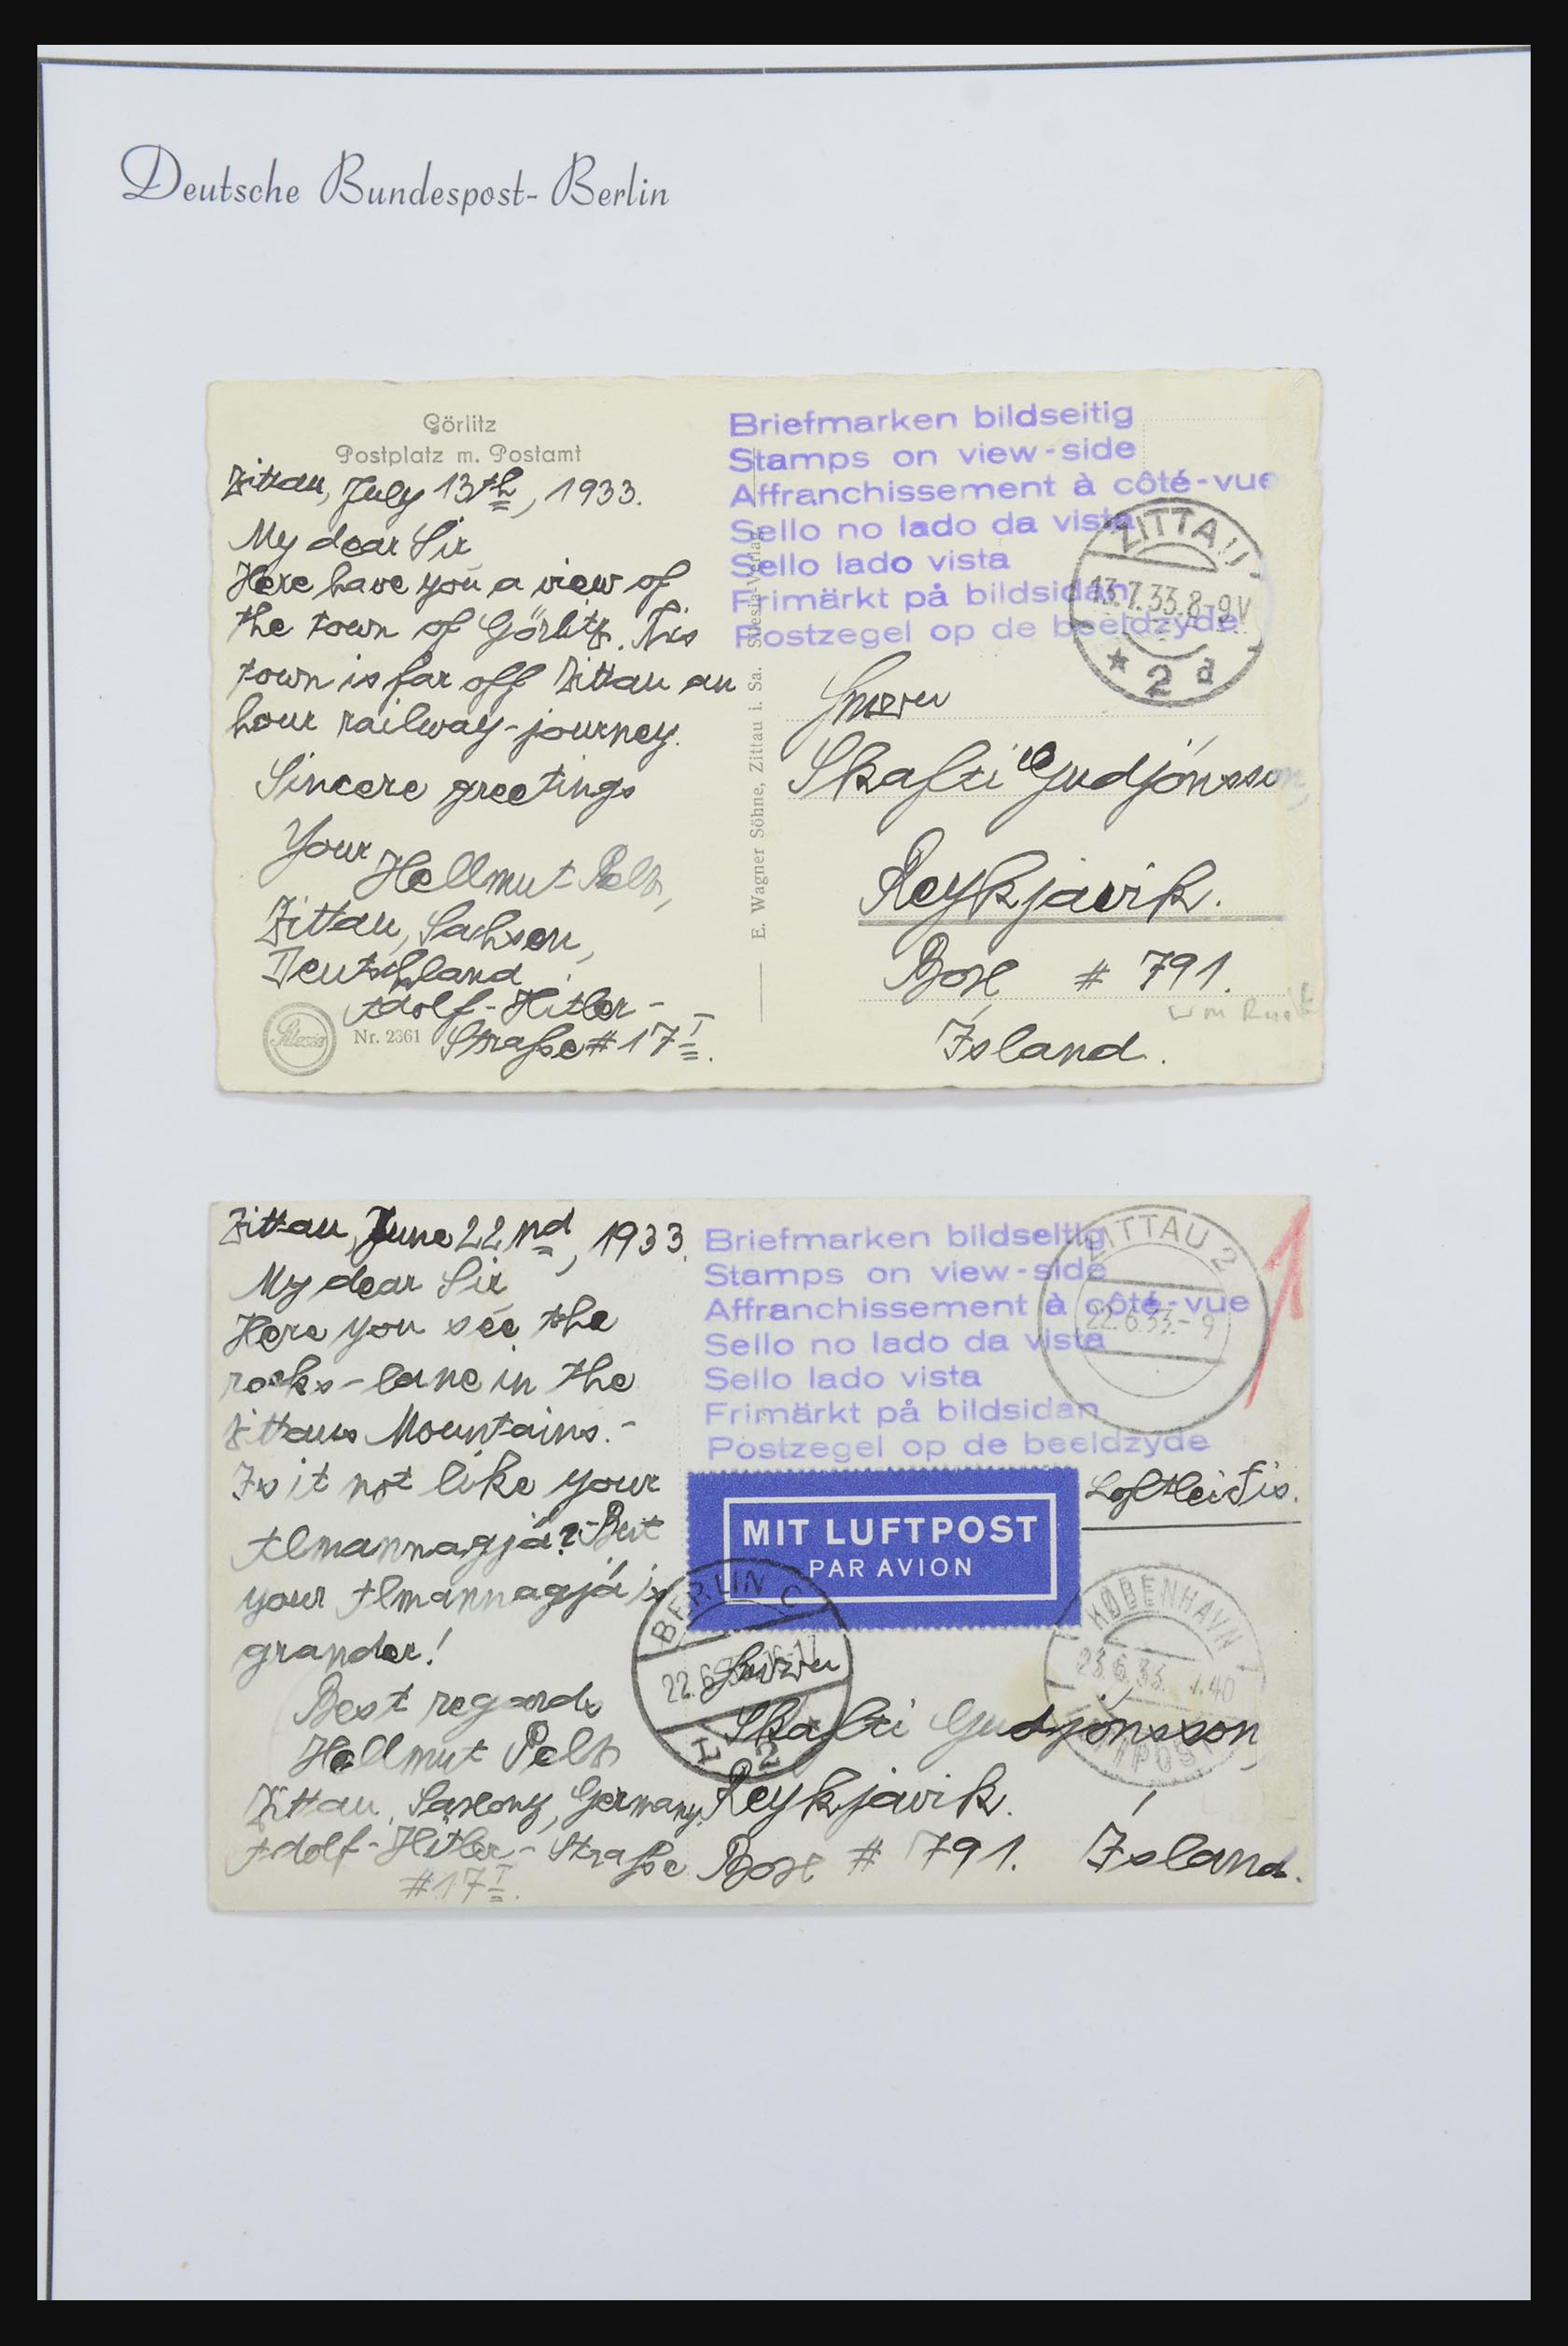 Deutsche Bundespost-Berlin
Görlitz
Postplatz m. Postamt
Zittau, July 13th, 1933.
My dear Sir
Here have you a view of
the town of Görlitz. This
town is far off Zittau an
hour railway-journey.
Sincere greetings
Your
Hellmut Pelz,
Zittau, Sachsen,
Deutschland
Adolf-Hitler-
Straße #17 I.
Silesia
Nr. 2361
E. Wagner Söhne, Zittau i. Sa. Silesia-Verlag
Briefmarken bildseitig
Stamps on view-side
Affranchissement à côté-vue
Sello no lado da vista
Sello lado vista
Frimärkt på bildsidan
Postzegel op de beeldzyde
ZITTAU
13.7.33.8-9V
* 2 d
Herrn
Skafti Gudjónsson,
Reykjavik.
Box # 791.
Ísland.
Zittau, June 22nd, 1933.
My dear Sir
Here you see the
rocks-lane in the
Zittaus Mountains.-
Is it not like your
Almannagjá?-But
your Almannagjá is
grander!
Best regards
Hellmut Pelz
Zittau, Saxony, Germany.
Adolf-Hitler-Straße
#17 I.
Briefmarken bildseitig
Stamps on view-side
Affranchissement à côté-vue
Sello no lado da vista
Sello lado vista
Frimärkt på bildsidan
Postzegel op de beeldzyde
ZITTAU 2
22.6.33.-9
MIT LUFTPOST
PAR AVION
Loftleiðis.
BERLIN C
22.6.
L 2
KØBENHAVN
23.6.33.
Herrn
Skafti Gudjónsson,
Reykjavik.
Box # 791. Ísland.